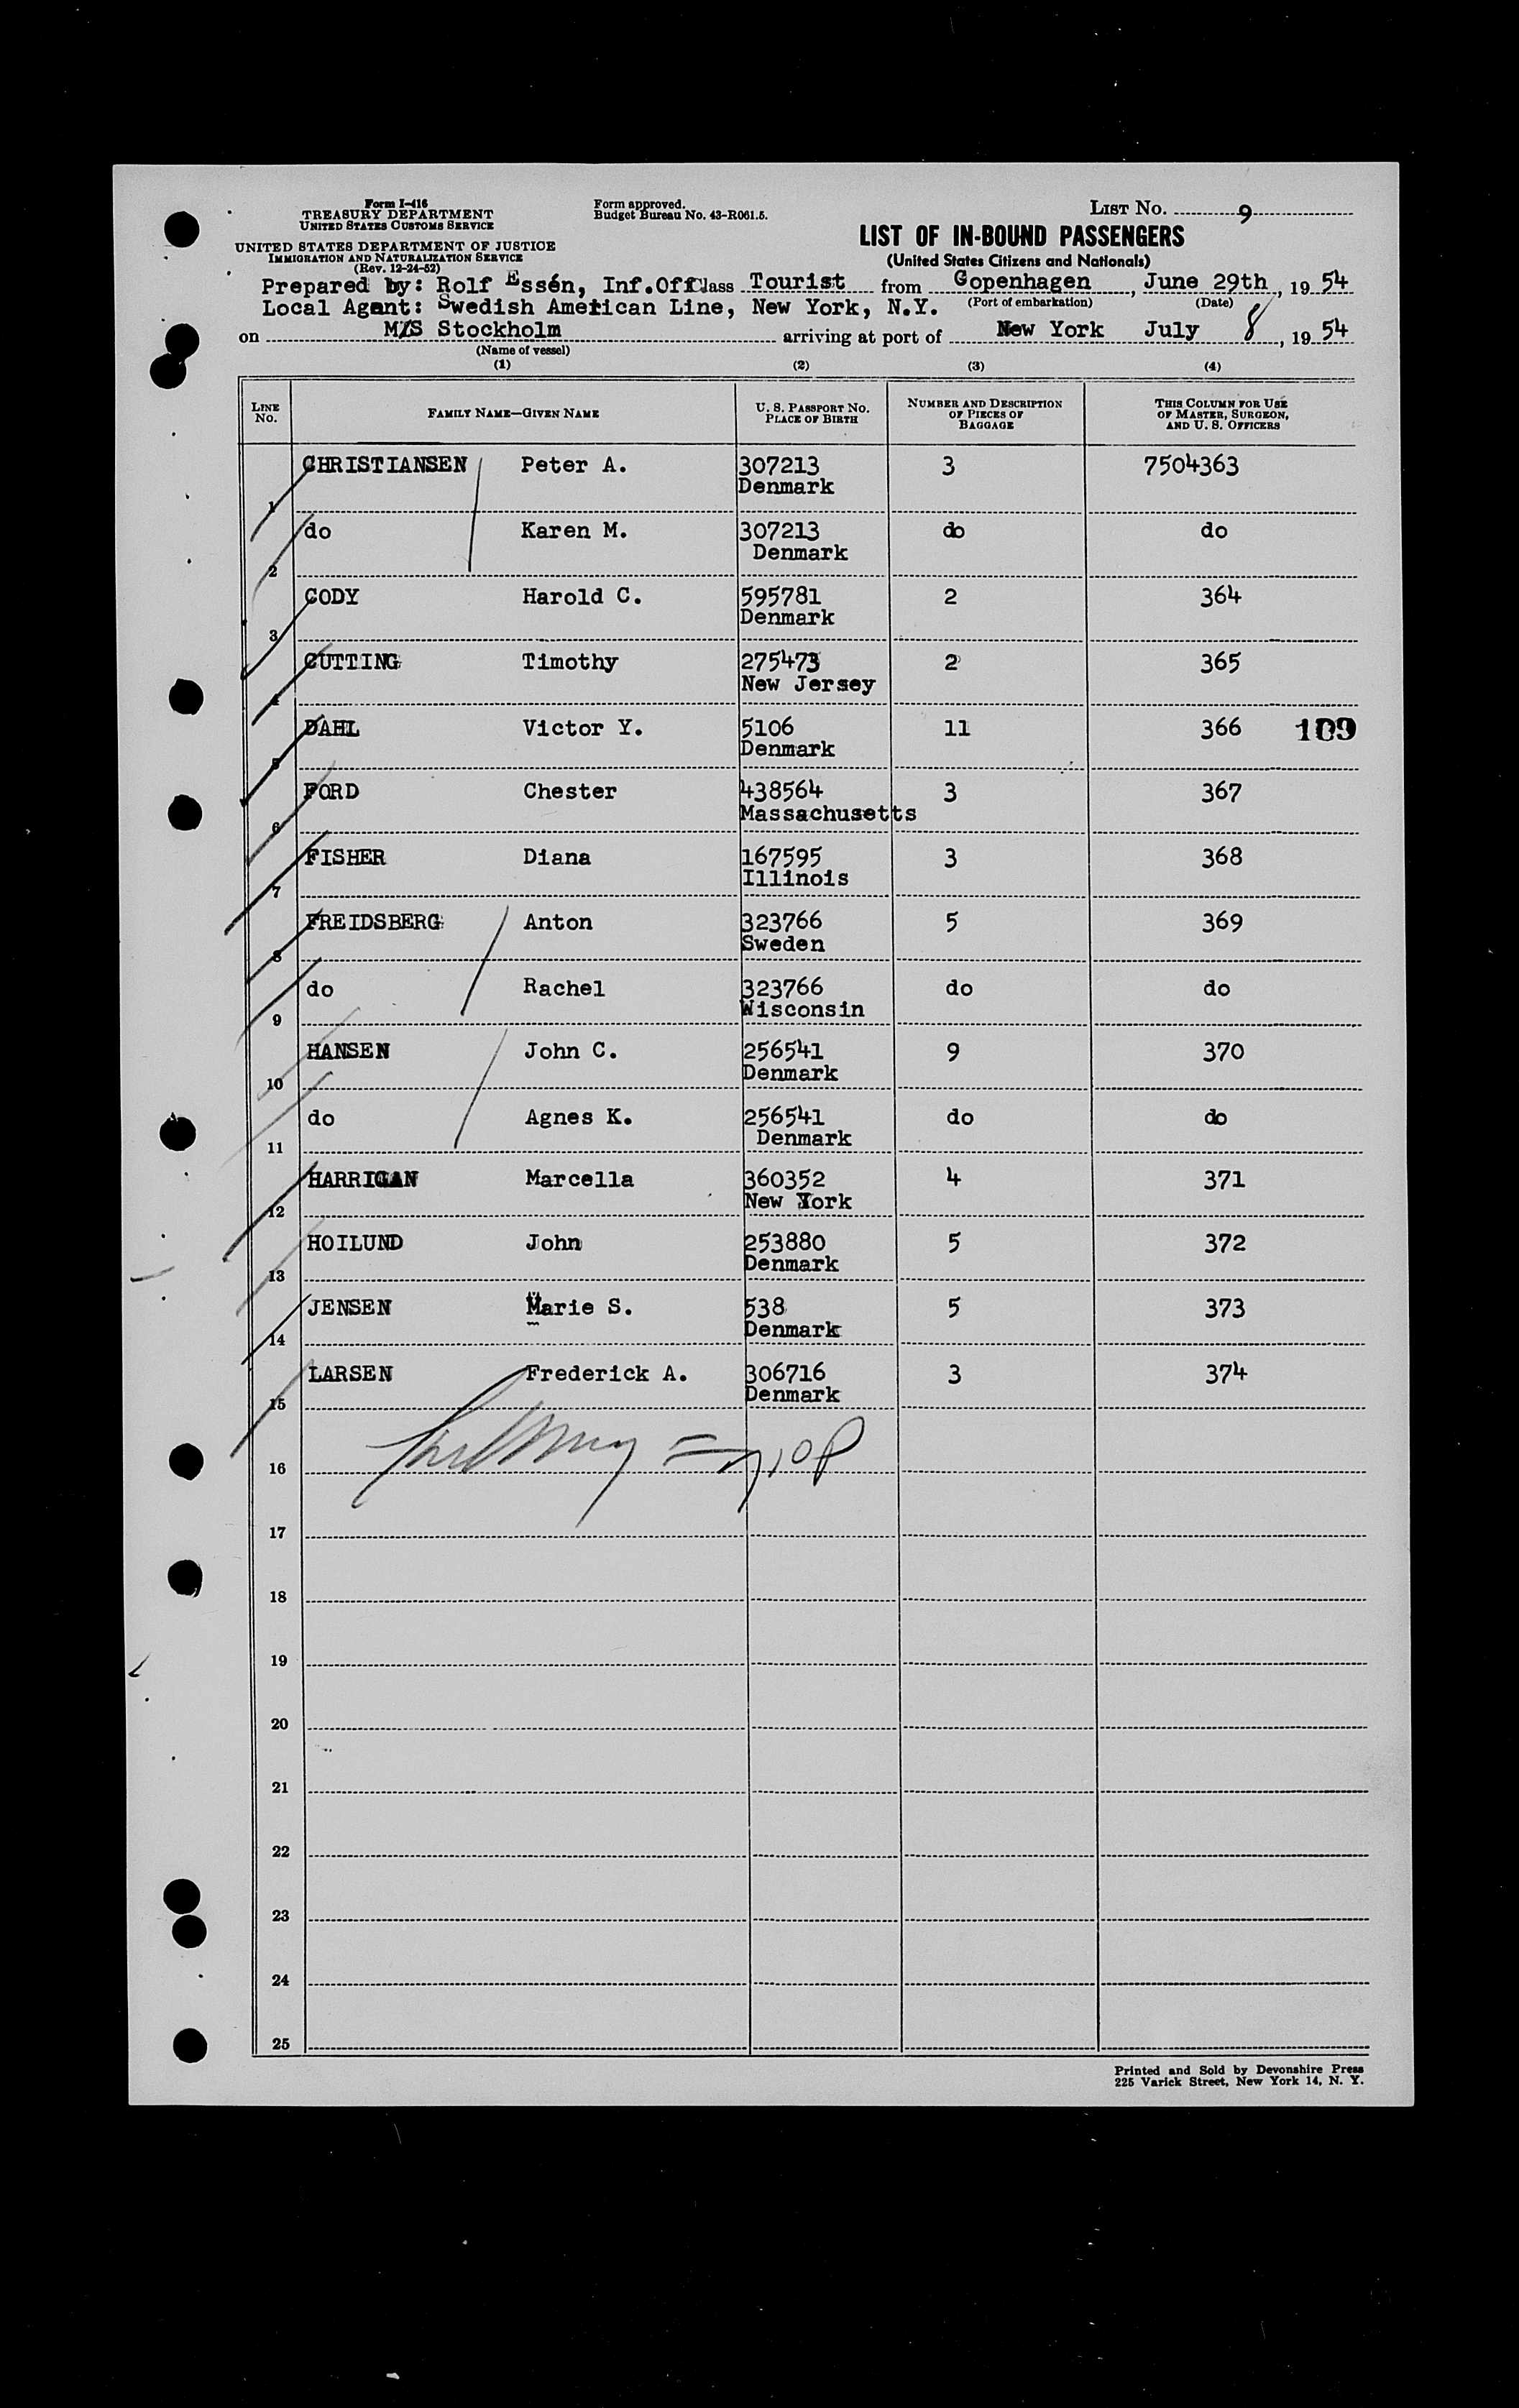 Form I-416
TREASURY DEPARTMENT
UNITED STATES CUSTOMS SERVICE
UNITED STATES DEPARTMENT OF JUSTICE
IMMIGRATION AND NATURALIZATION SERVICE
(Rev. 12-24-52)
Form approved.
Budget Bureau No. 43-R061.5.
LIST No. 9
LIST OF IN-BOUND PASSENGERS
(United States Citizens and Nationals)
Prepared by: Rolf Essén, Inf.Off Class Tourist from Copenhagen, June 29th, 1954
Local Agent: Swedish American Line, New York, N.Y. (Port of embarkation) (Date)
on M/S Stockholm arriving at port of New York July 8, 1954
(Name of vessel)
(1) (2) (3) (4)
LINE No. FAMILY NAME—GIVEN NAME U. S. PASSPORT NO. PLACE OF BIRTH NUMBER AND DESCRIPTION OF PIECES OF BAGGAGE THIS COLUMN FOR USE OF MASTER, SURGEON, AND U. S. OFFICERS
CHRISTIANSEN Peter A. 307213 3 7504363
1 Denmark
do Karen M. 307213 do do
2 Denmark
CODY Harold C. 595781 2 364
3 Denmark
CUTTING Timothy 275473 2 365
4 New Jersey
DAHL Victor Y. 5106 11 366 109
5 Denmark
FORD Chester 438564 3 367
6 Massachusetts
FISHER Diana 167595 3 368
7 Illinois
FREIDSBERG Anton 323766 5 369
8 Sweden
do Rachel 323766 do do
9 Wisconsin
HANSEN John C. 256541 9 370
10 Denmark
do Agnes K. 256541 do do
11 Denmark
HARRIGAN Marcella 360352 4 371
12 New York
HOILUND John 253880 5 372
13 Denmark
JENSEN Marie S. 538 5 373
14 Denmark
LARSEN Frederick A. 306716 3 374
15 Denmark
16
17
18
19
20
21
22
23
24
25
Printed and Sold by Devonshire Press
225 Varick Street, New York 14, N. Y.